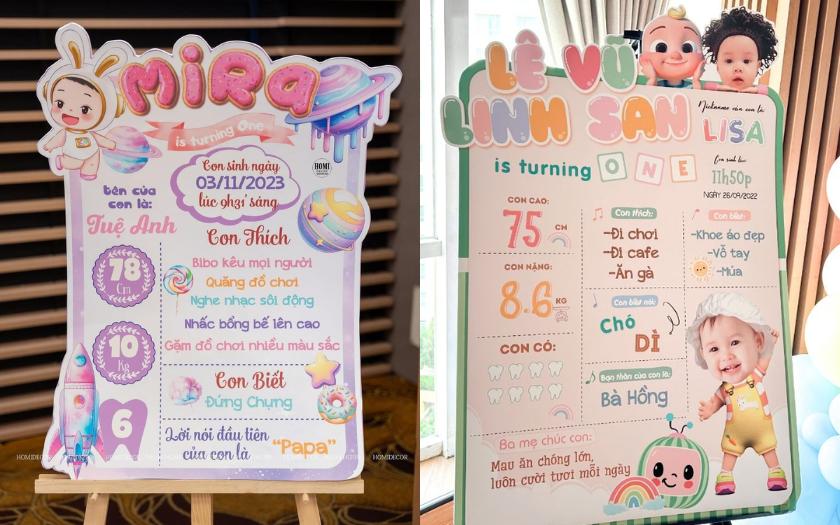 MiRa
is turning One
Con sinh ngày
03/11/2023
lúc 9h31' sáng
HOMI
tên của
con là:
Tuệ Anh
Con Thích
Bibo kêu mọi người
Quăng đồ chơi
Nghe nhạc sôi động
Nhấc bổng bế lên cao
Gặm đồ chơi nhiều màu sắc
78
Cm
10
Kg
6
Con Biết
Đứng Chựng
Lời nói đầu tiên
của con là
"Papa"
HOMIDECOR
HOMIDECOR
HOMIDECOR
LÊ VŨ
LINH SAN
Nickname của con là:
LISA
is turning ONE
Con sinh lúc
11h50p
NGÀY 26/09/2022
CON CAO:
75
CM
CON NẶNG:
8.6
KG
CON CÓ:
Con thích:
-Đi chơi
-Đi cafe
-Ăn gà
Con biết:
-Khoe áo đẹp
-Vỗ tay
-Múa
Con biết nói:
Chó
DÌ
Bạn thân của con là:
Bà Hồng
Ba mẹ chúc con:
Mau ăn chóng lớn,
luôn cười tươi mỗi ngày